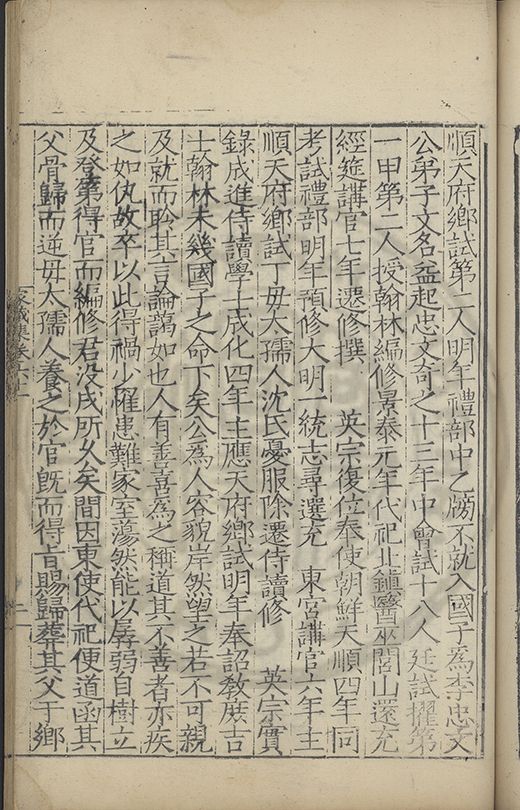 順天府鄉試第二人明年禮部中乙牓不就入國子為李忠文
公弟子文名益起忠文奇之十三年中會試十八人 廷試擢第
一甲第二人授翰林編修景泰元年代祀北鎮醫巫閭山還充
經筵講官七年遷修撰 英宗復位奉使朝鮮天順四年同
考試禮部明年預修大明一統志尋選充 東宮講官六年主
順天府鄉試丁毋太孺人沈氏憂服除遷侍讀修 英宗實
錄成進侍讀學士成化四年主應天府鄉試明年奉詔敎庶吉
士翰林未幾國子之命下矣公為人容貌岸然望之若不可親
及就而聆其言論藹如也人有善喜為之稱道其不善者亦疾
之如仇故卒以此得禍少罹患難家室蕩然能以孱弱自樹立
及登第得官而編修君没戍所乆矣間因東使代祀便道函其
父骨歸而逆毋太孺人養之於官旣而得旨賜歸葬其父于鄉
家藏集卷
二